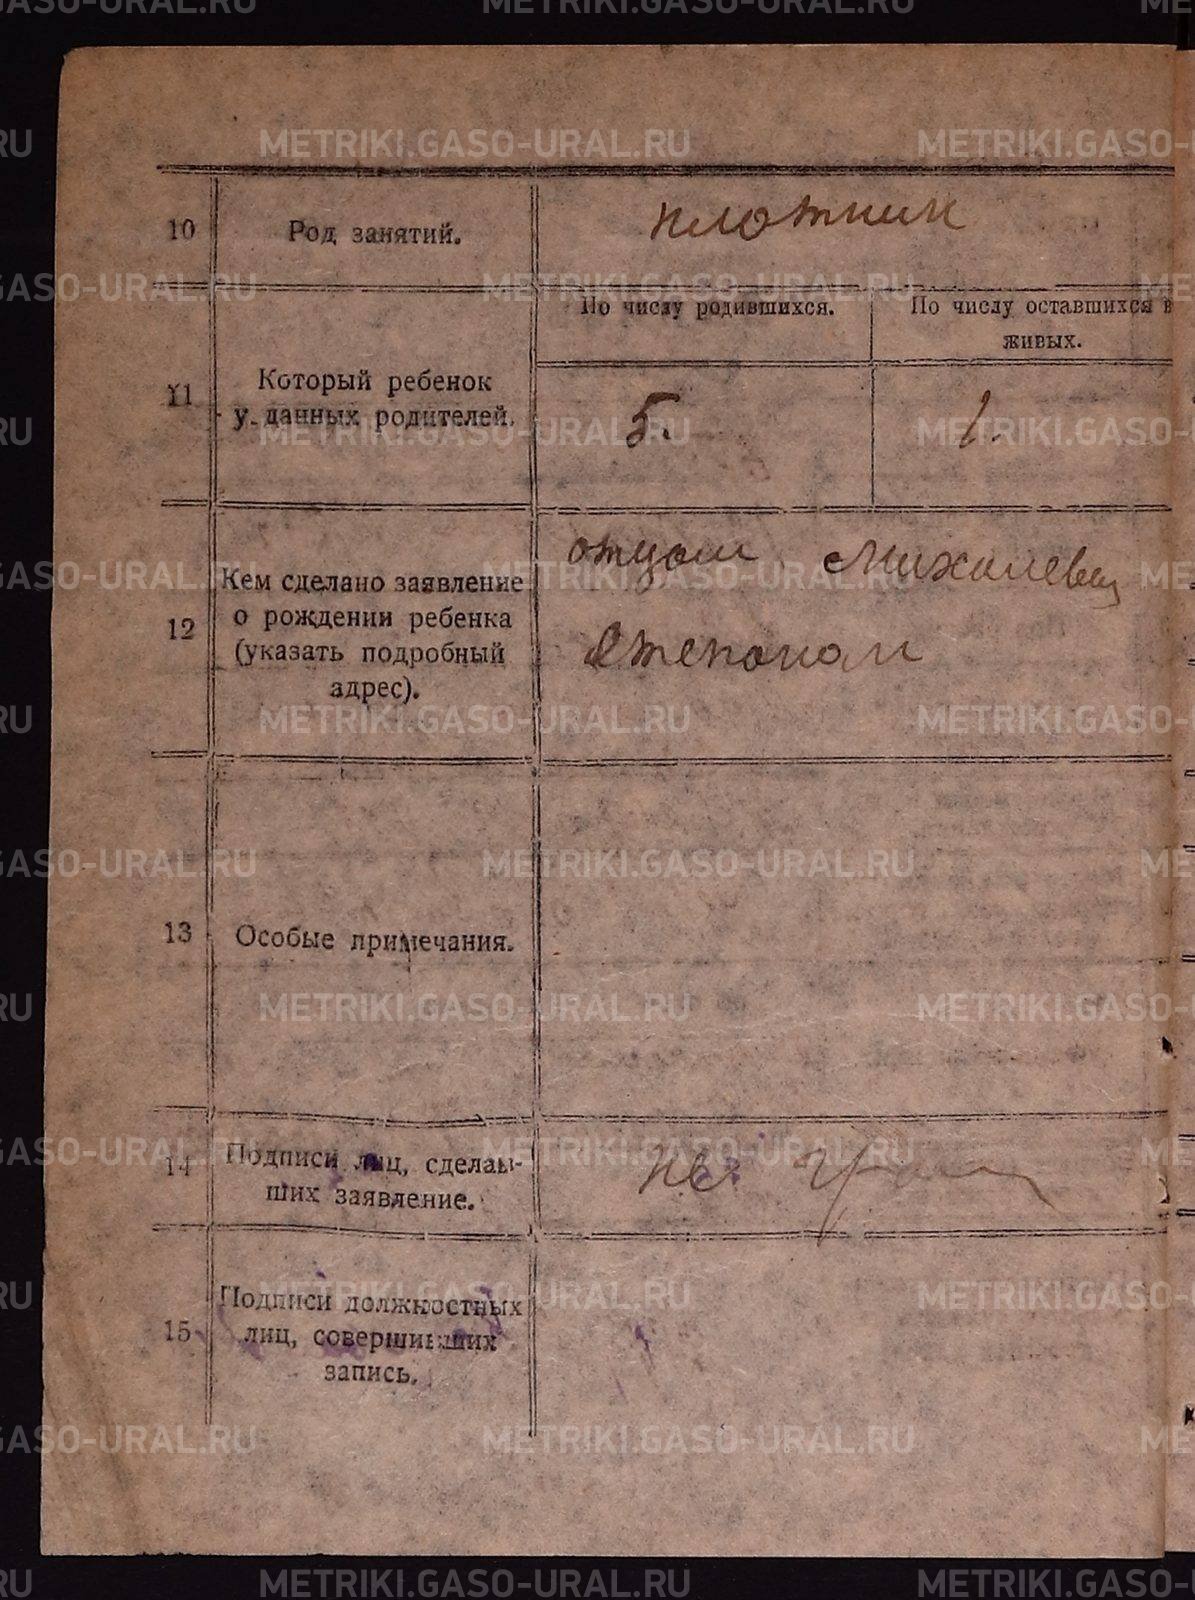 METRIKI.GASO-URAL.RU
10 Род занятий. плотник
По числу родившихся. По числу оставшихся в
живых.
11 Который ребенок
у данных родителей.
5. 1.
12 Кем сделано заявление
о рождении ребенка
(указать подробный
адрес).
отцом
Степаном
13 Особые примечания.
14 Подписи лиц, сделав-
ших заявление.
15 Подписи должностных
лиц, совершивших
запись.